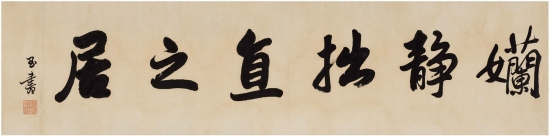 孏静拙直之居
玉書